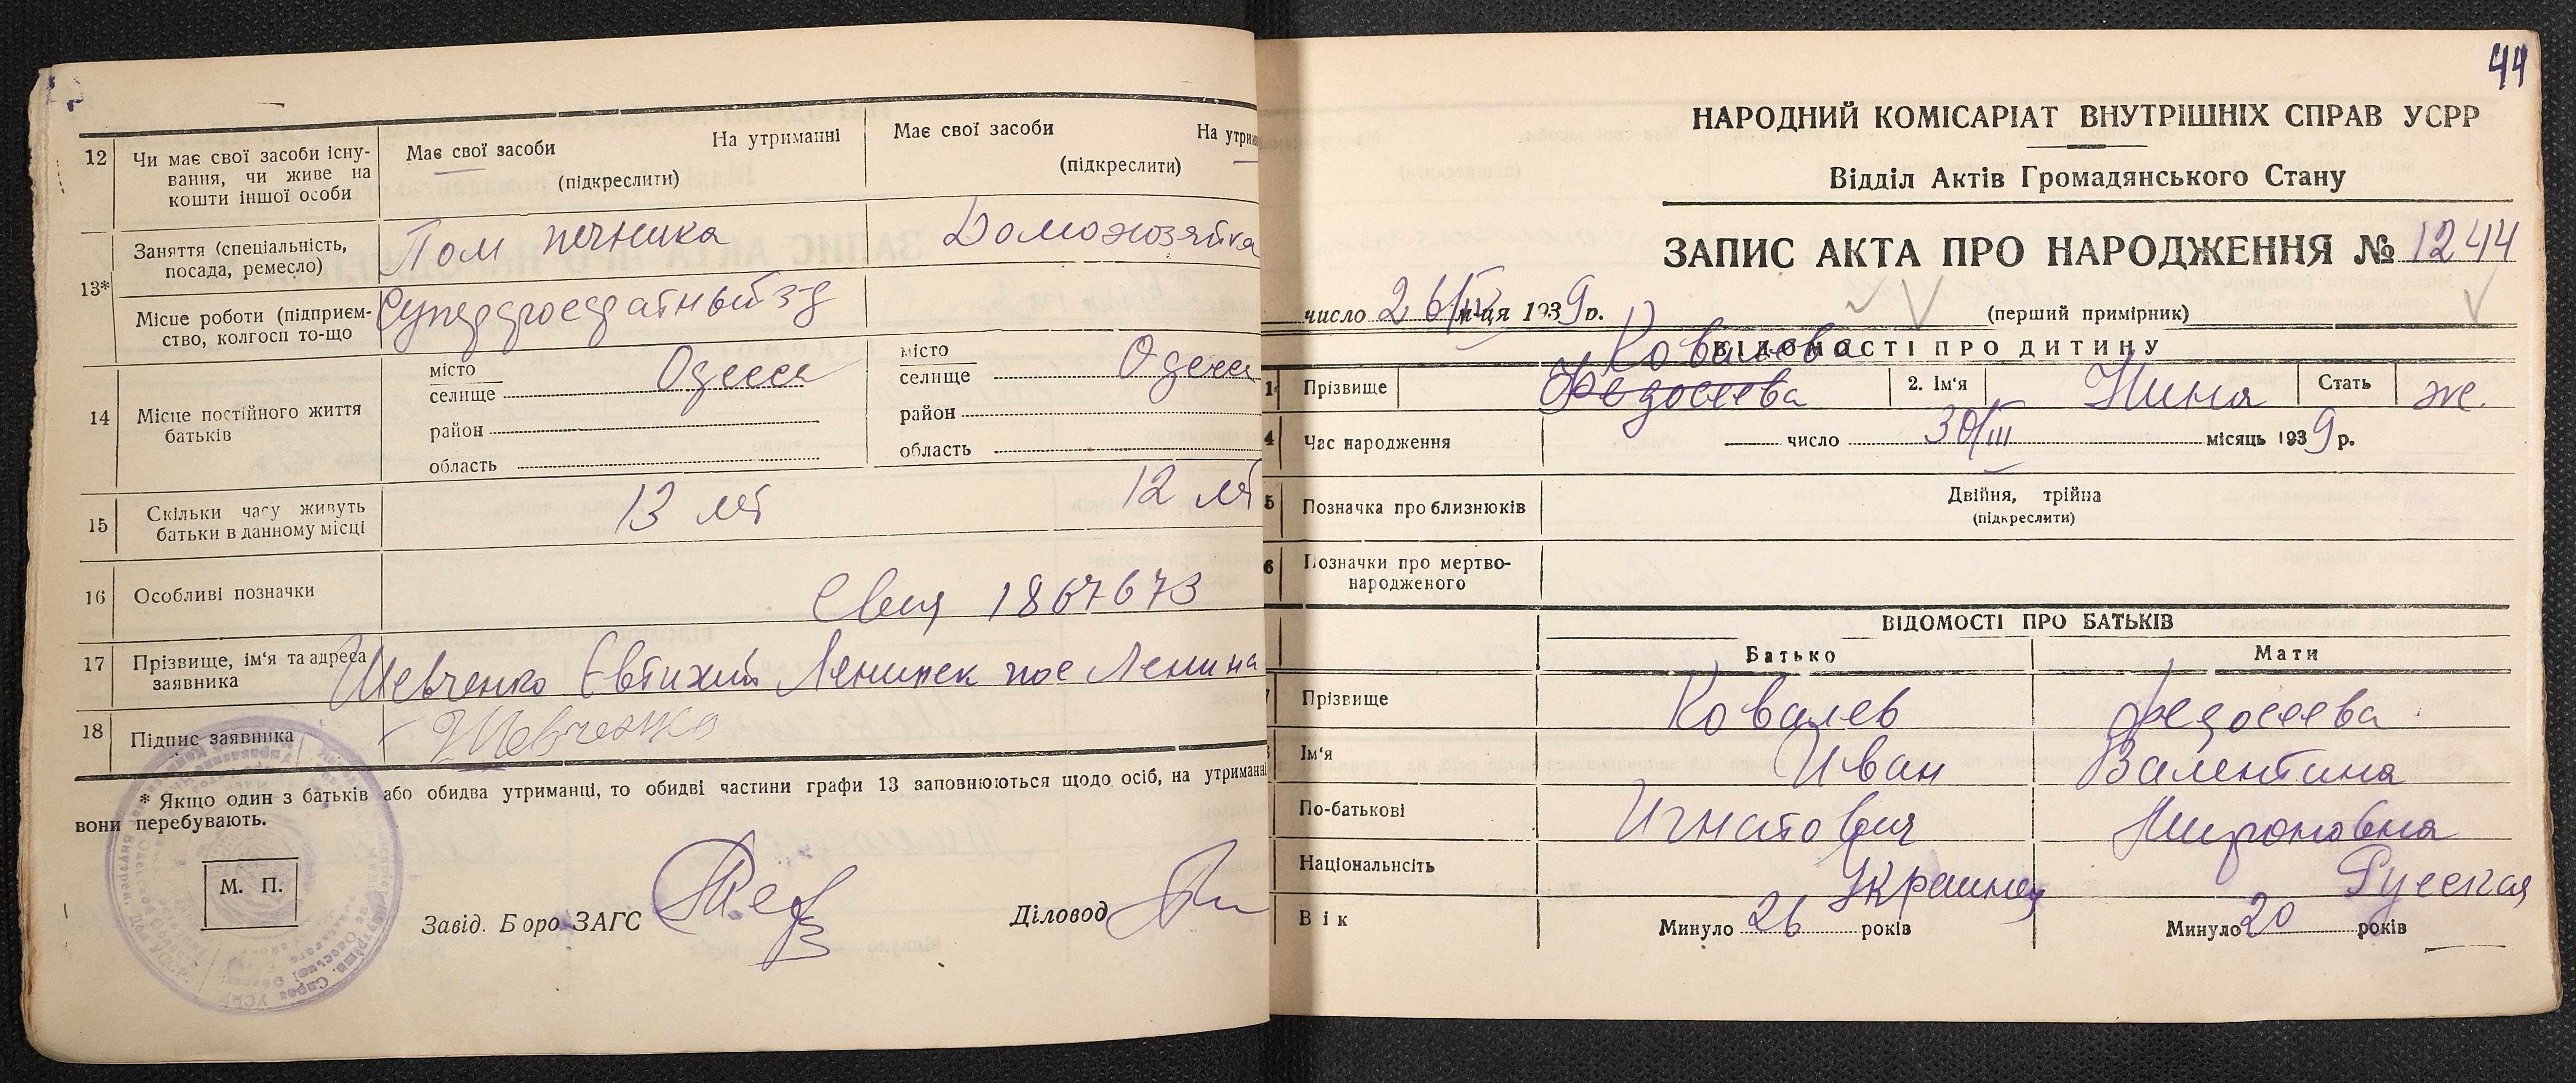 12 Чи має свої засоби існу-
вання, чи живе на
кошти іншої особи
Має свої засоби На утриманні
(підкреслити)
Має свої засоби На утрим
(підкреслити)
13*
Заняття (спеціальність,
посада, ремесло)
Пом печника Домохозяйка
Місце роботи (підприєм-
ство, колгосп то-що
Суперфосфатный з-д
14 Місце постійного життя
батьків
місто
селище Одесса
район
область
місто
селище Одесса
район
область
15 Скільки часу живуть
батьки в данному місці
13 лет 12 лет
16 Особливі позначки
1867673
17 Прізвище, ім'я та адреса
заявника
Шевченко Євтихий Ленинск пос Ленина
18 Підпис заявника
Шевченко
* Якщо один з батьків або обидва утриманці, то обидві частини графи 13 заповнюються щодо осіб, на утриманні
вони перебувають.
М. П.
Завід. Бюро ЗАГС
Діловод
44
НАРОДНИЙ КОМІСАРІАТ ВНУТРІШНІХ СПРАВ УСРР
Відділ Актів Громадянського Стану
ЗАПИС АКТА ПРО НАРОДЖЕННЯ № 1244
число 26/IV м-ця 1939 р.
(перший примірник)
Ковалева
ВІДОМОСТІ ПРО ДИТИНУ
1 Прізвище Федосеева 2. Ім'я Нина Стать ж.
4 Час народження число 30/III місяць 1939 р.
5 Позначка про близнюків
Двійня, трійна
(підкреслити)
6 Позначки про мертво-
народженого
ВІДОМОСТІ ПРО БАТЬКІВ
Батько Мати
7 Прізвище Ковалев Федосеева
Ім'я Иван Валентина
По-батькові Игнатович Мироновна
Національнсіть Украинец Русская
Вік Минуло 26 років Минуло 20 років